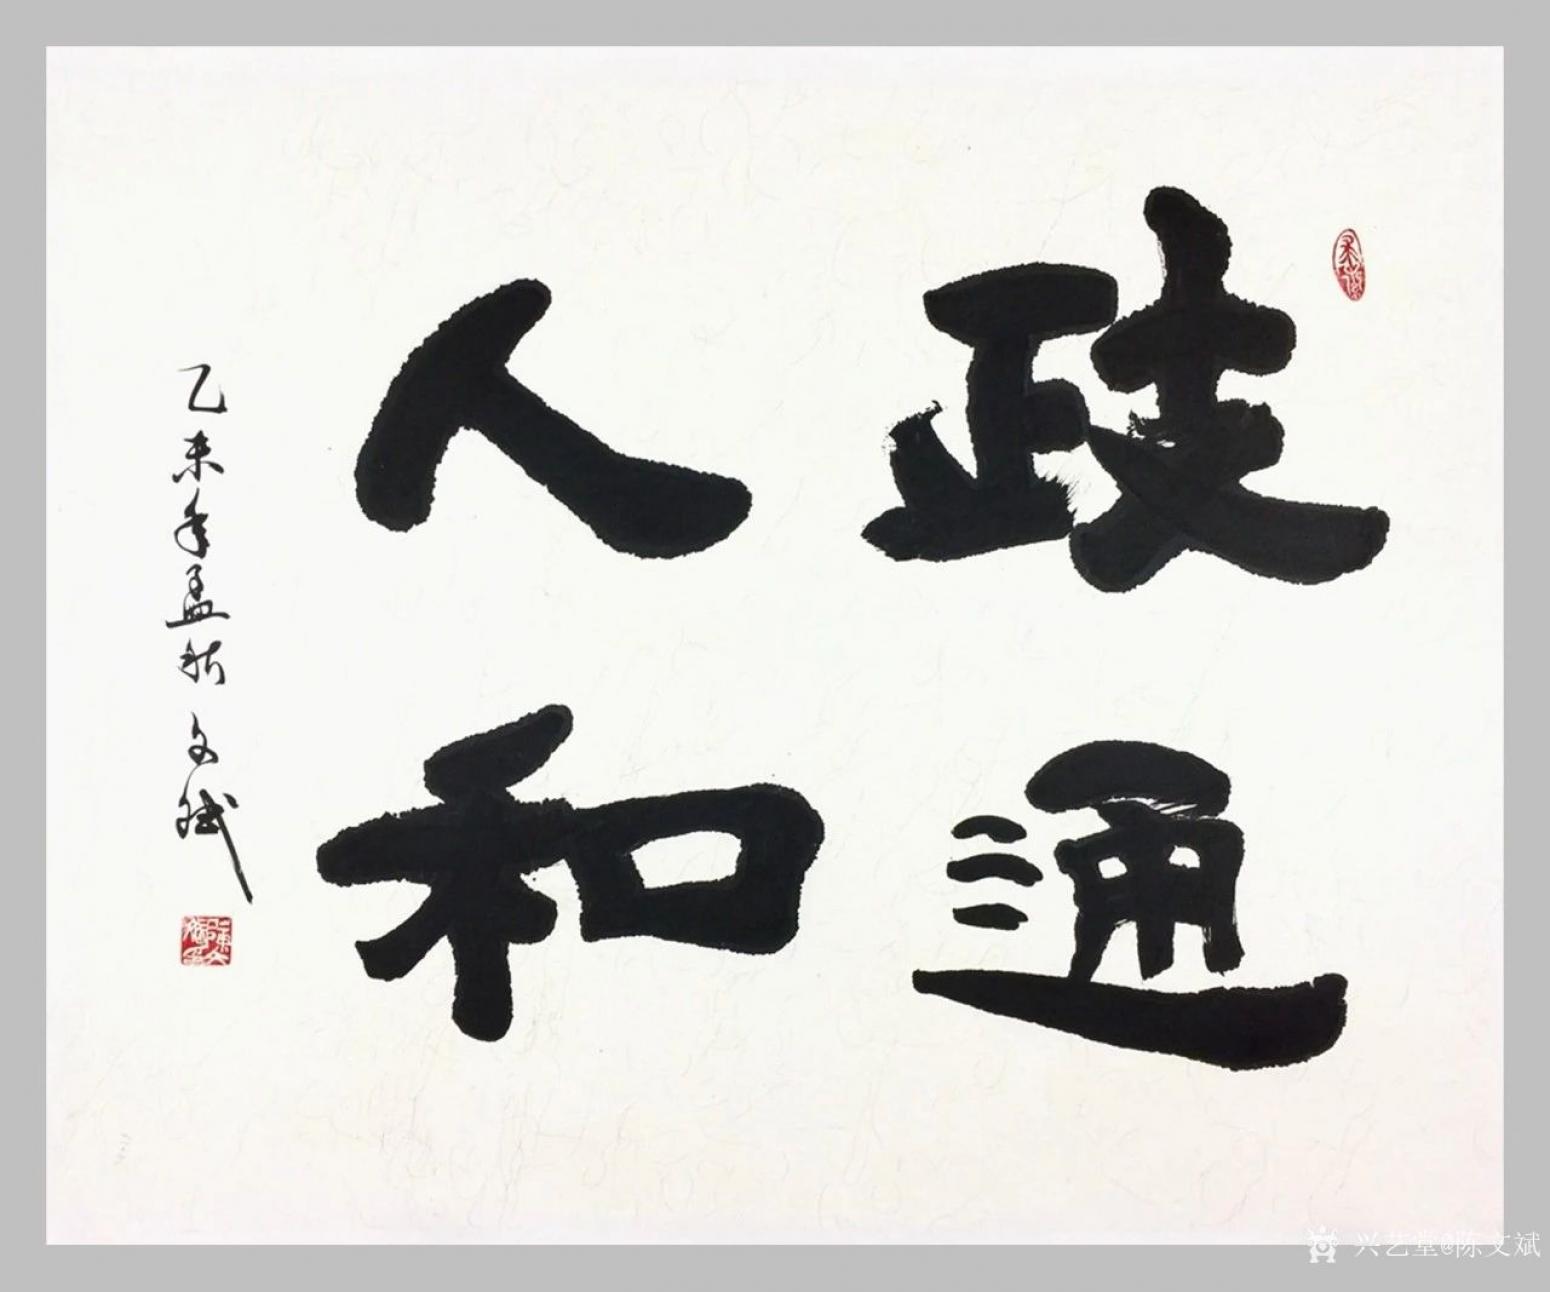 政通
人和
乙未年孟秋 文斌
兴艺堂@陈文斌